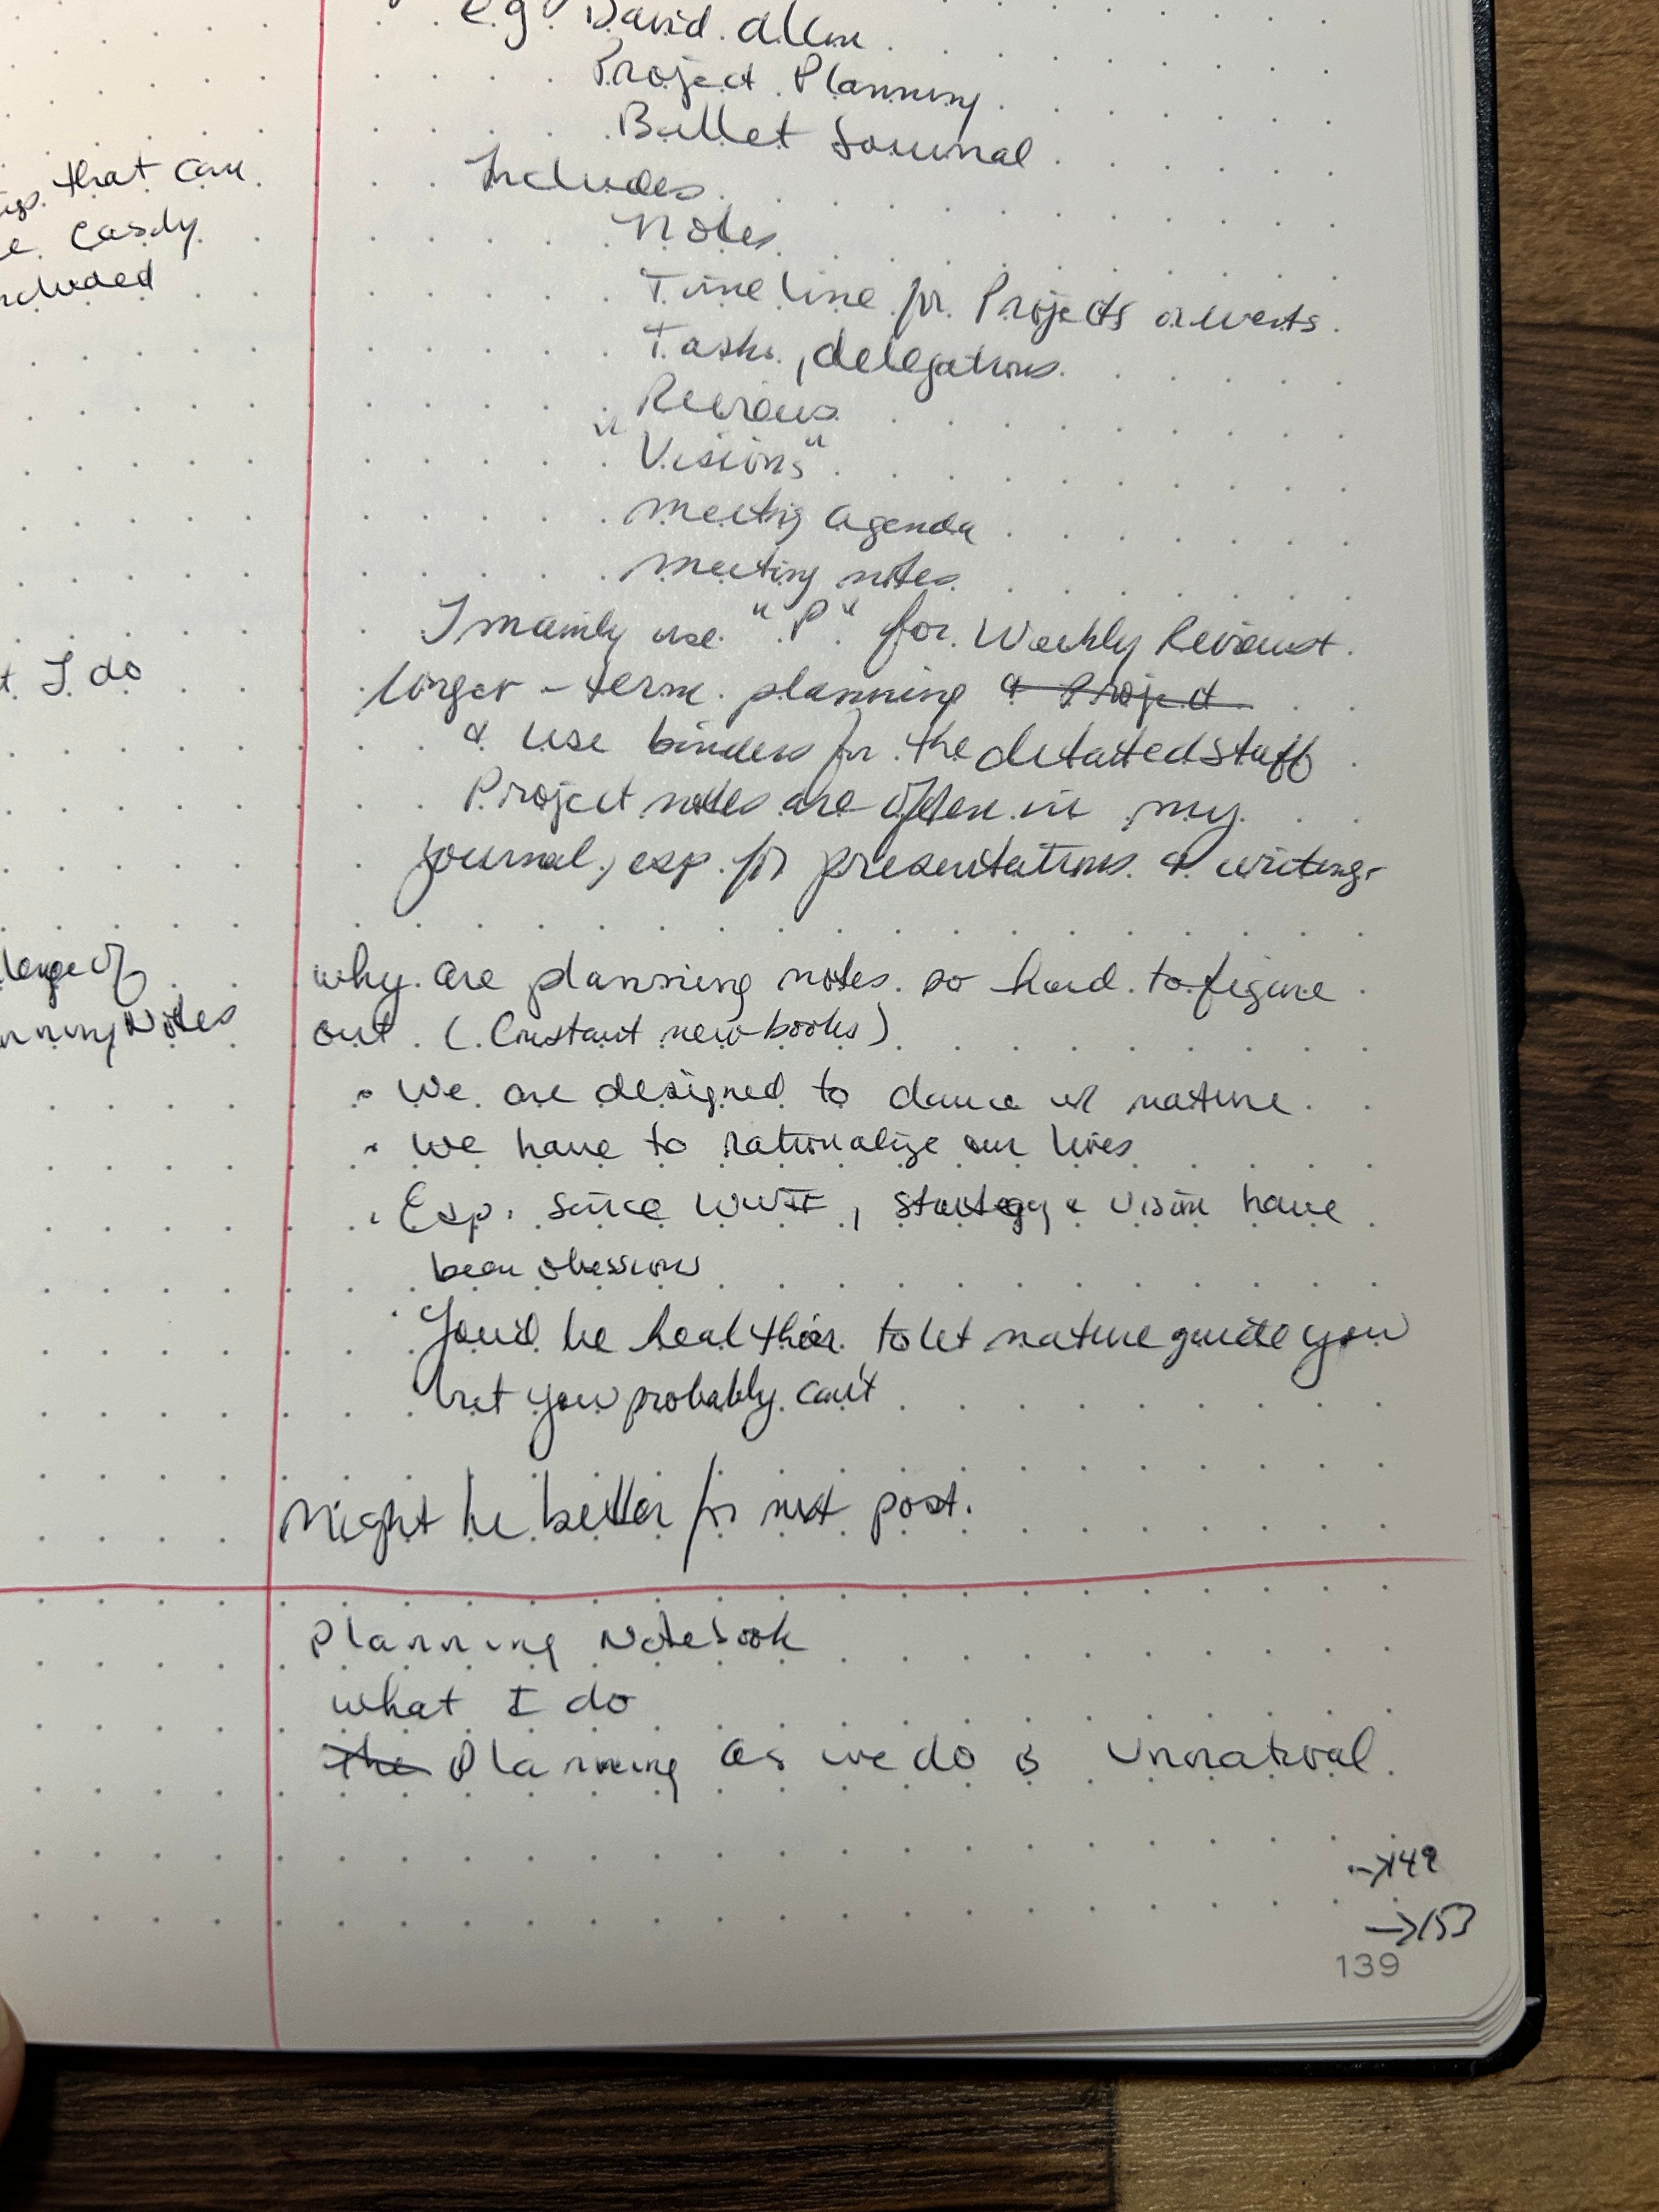 e.g. David Allen
Project Planning
Bullet Journal
that can
Includes
easily
Notes
Timeline for Projects or events
Tasks, delegations
Reviews
"Visions"
meeting agenda
meeting notes
I mainly use "P" for Weekly Reviews +
I do
longer-term planning & Project
& use binders for the detailed stuff
Project notes are often in my
journal, esp. for presentations & writing.
why are planning notes so hard to figure
Notes
out (Constant new books)
• We are designed to dance w/ nature.
• We have to rationalize our lives
• Esp. since WWII, strategy & vision have
been obsessions
• You'd be healthier to let nature guide you
but you probably can't
Might be better for next post.
Planning Notebook
what I do
The Planning as we do is Unnatural.
→149
→153
139